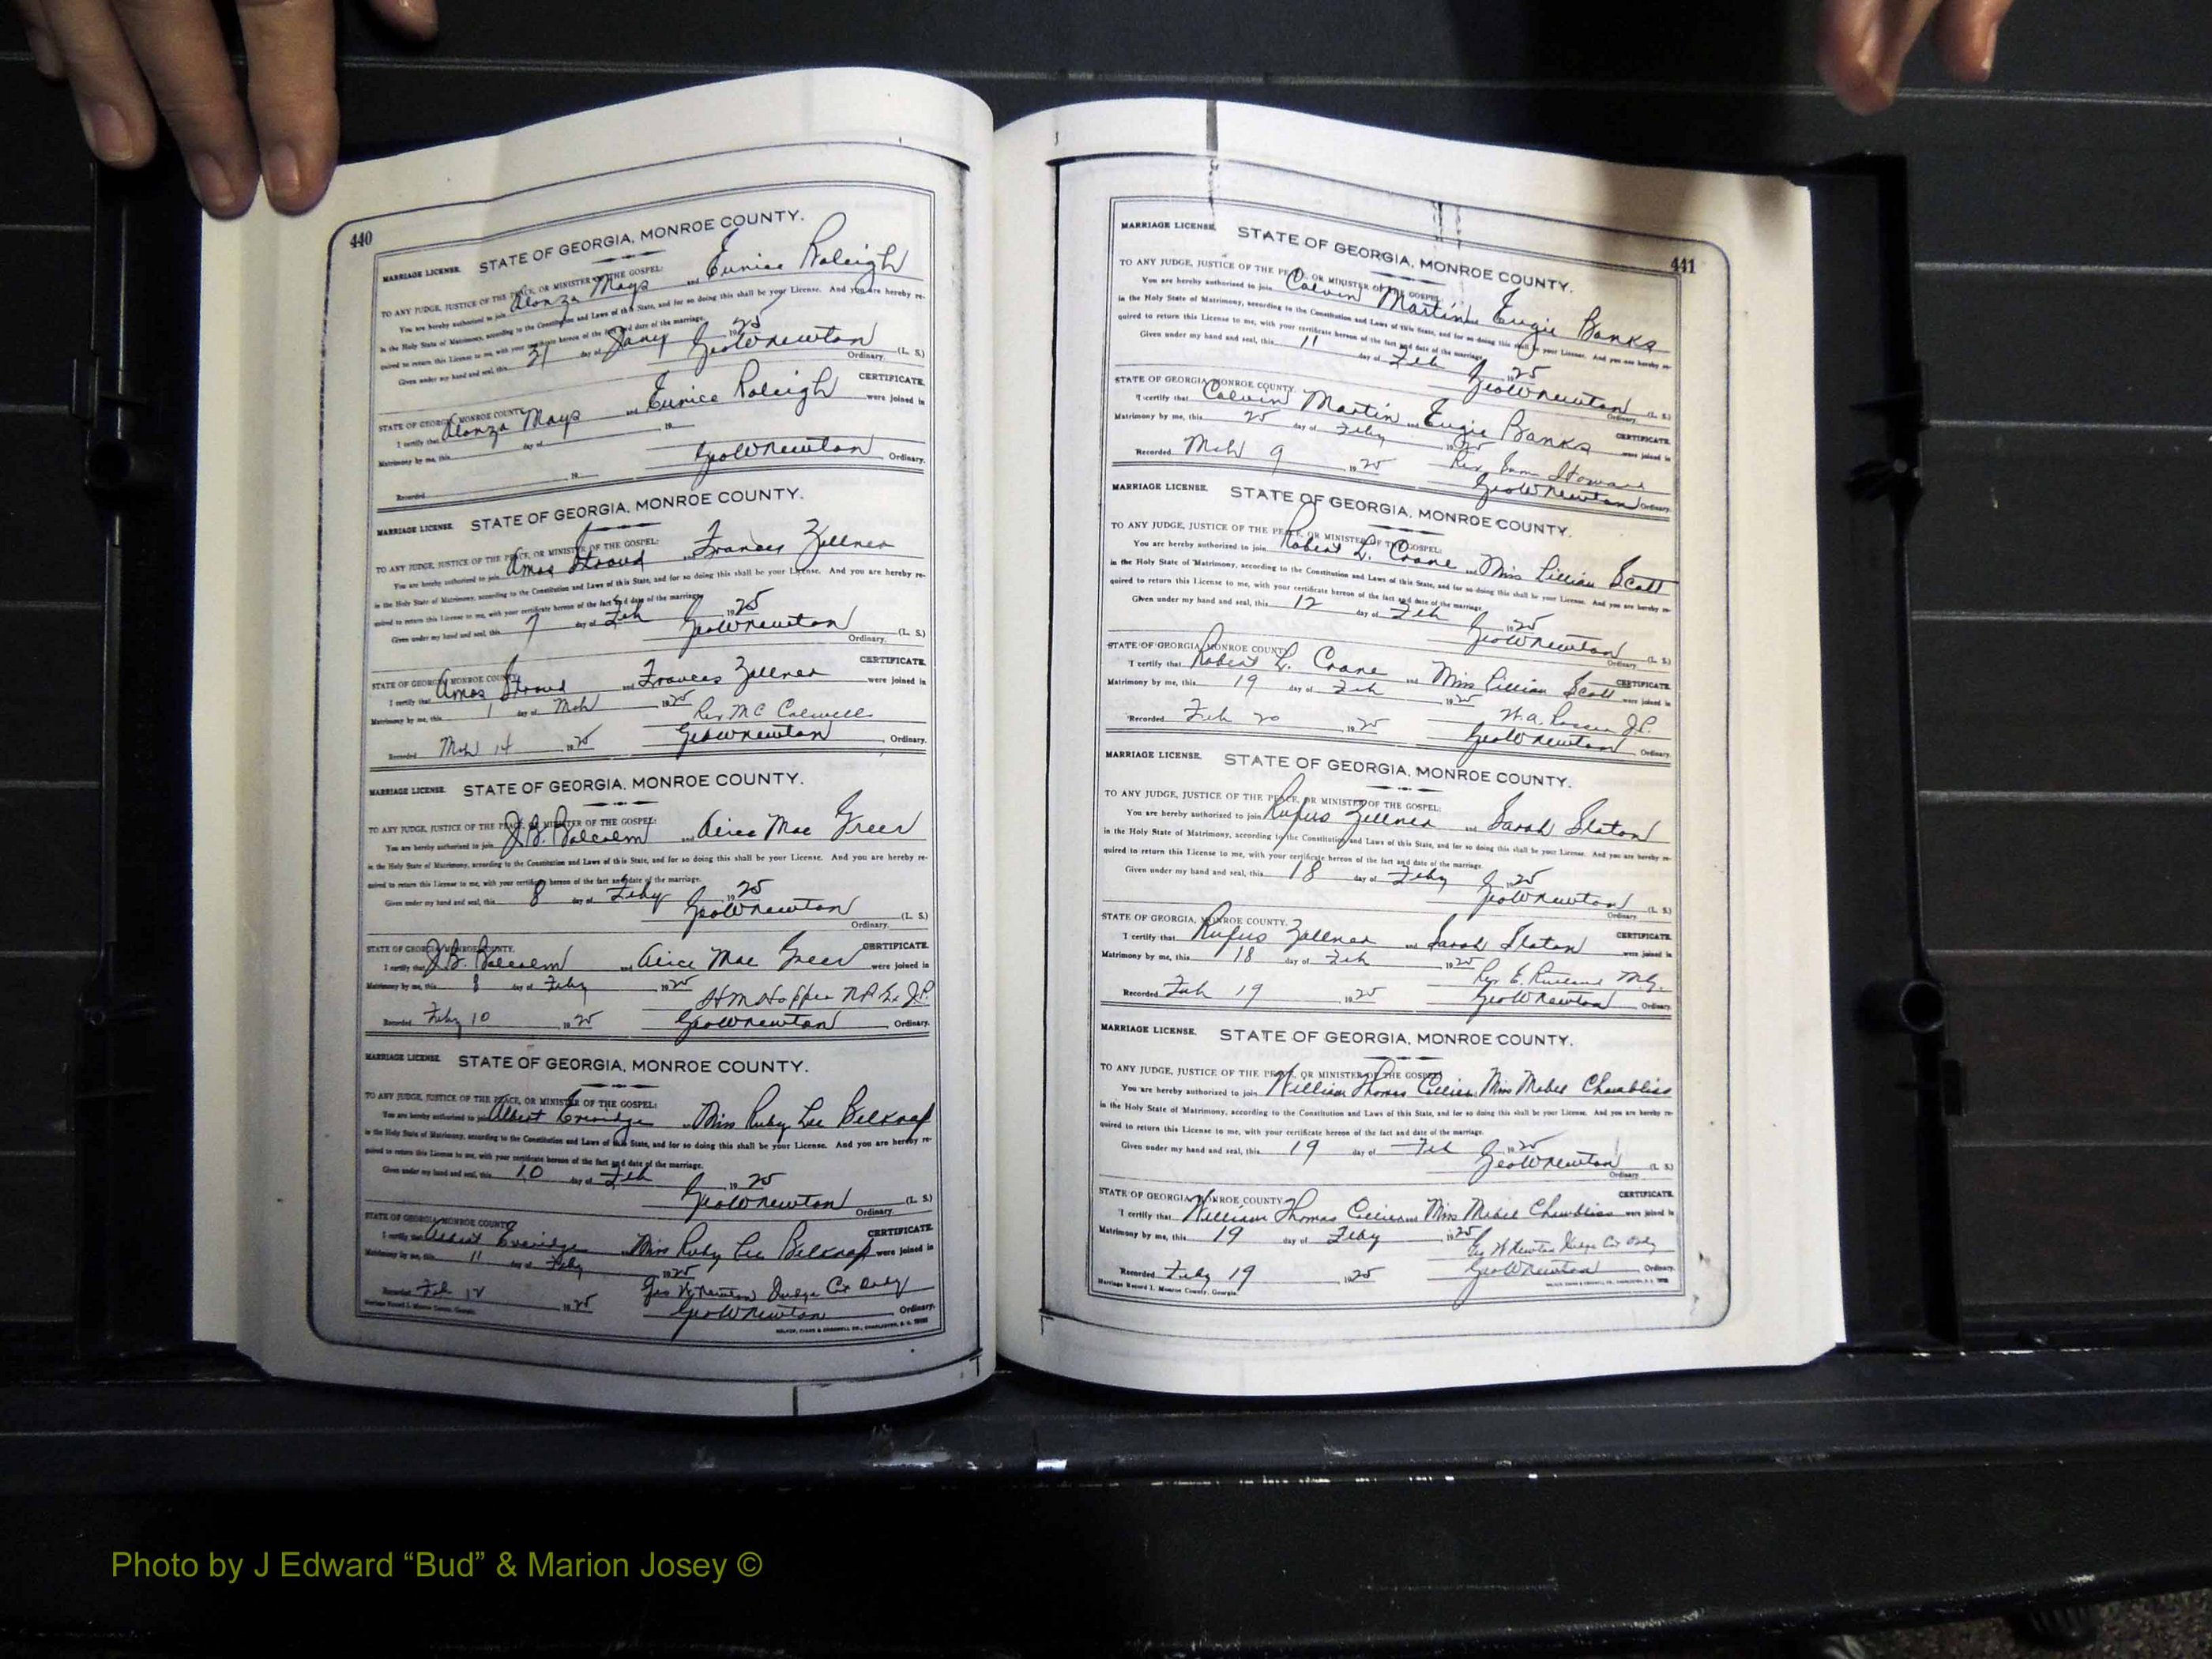 440
MARRIAGE LICENSE. STATE OF GEORGIA, MONROE COUNTY.
TO ANY JUDGE, JUSTICE OF THE PEACE, OR MINISTER OF THE GOSPEL:
You are hereby authorized to join Alonza Mays and Eunice Raleigh
in the Holy State of Matrimony, according to the Constitution and Laws of this State, and for so doing this shall be your License. And you are hereby re-
quired to return this License to me, with your certificate hereon of the fact and date of the marriage.
Given under my hand and seal, this 31 day of Jany 1925
GeoWNewton (L. S.)
Ordinary.
STATE OF GEORGIA, MONROE COUNTY. CERTIFICATE.
I certify that Alonza Mays and Eunice Raleigh were joined in
Matrimony by me, this day of 19
Recorded 19 GeoWNewton Ordinary.
MARRIAGE LICENSE. STATE OF GEORGIA, MONROE COUNTY.
TO ANY JUDGE, JUSTICE OF THE PEACE, OR MINISTER OF THE GOSPEL:
You are hereby authorized to join Amos Stroud and Frances Zellner
in the Holy State of Matrimony, according to the Constitution and Laws of this State, and for so doing this shall be your License. And you are hereby re-
quired to return this License to me, with your certificate hereon of the fact and date of the marriage.
Given under my hand and seal, this 7 day of Feb 1925
GeoWNewton (L. S.)
Ordinary.
STATE OF GEORGIA, MONROE COUNTY. CERTIFICATE.
I certify that Amos Stroud and Frances Zellner were joined in
Matrimony by me, this 1 day of Mch 1925
Rev MC Calwell
Recorded Mch 14 1925 GeoWNewton Ordinary.
MARRIAGE LICENSE. STATE OF GEORGIA, MONROE COUNTY.
TO ANY JUDGE, JUSTICE OF THE PEACE, OR MINISTER OF THE GOSPEL:
You are hereby authorized to join J.B. Balcolm and Alice Mae Greer
in the Holy State of Matrimony, according to the Constitution and Laws of this State, and for so doing this shall be your License. And you are hereby re-
quired to return this License to me, with your certificate hereon of the fact and date of the marriage.
Given under my hand and seal, this 8 day of Feby 1925
GeoWNewton (L. S.)
Ordinary.
STATE OF GEORGIA, MONROE COUNTY. CERTIFICATE.
I certify that J.B. Balcolm and Alice Mae Greer were joined in
Matrimony by me, this 8 day of Feby 1925
HM Hopper NP Ex J.P.
Recorded Feby 10 1925 GeoWNewton Ordinary.
MARRIAGE LICENSE. STATE OF GEORGIA, MONROE COUNTY.
TO ANY JUDGE, JUSTICE OF THE PEACE, OR MINISTER OF THE GOSPEL:
You are hereby authorized to join Albert and Miss Ruby Lee Belknap
in the Holy State of Matrimony, according to the Constitution and Laws of this State, and for so doing this shall be your License. And you are hereby re-
quired to return this License to me, with your certificate hereon of the fact and date of the marriage.
Given under my hand and seal, this 10 day of Feb 1925
GeoWNewton (L. S.)
Ordinary.
STATE OF GEORGIA, MONROE COUNTY. CERTIFICATE.
I certify that Albert and Miss Ruby Lee Belknap were joined in
Matrimony by me, this 11 day of Feby 1925
Geo W Newton Judge Ct Ordy
Recorded Feb 12 1925 GeoWNewton Ordinary.
Marriage Record I, Monroe County, Georgia. WALKER, EVANS & COGSWELL CO., CHARLESTON, S. C.
441
MARRIAGE LICENSE. STATE OF GEORGIA, MONROE COUNTY.
TO ANY JUDGE, JUSTICE OF THE PEACE, OR MINISTER OF THE GOSPEL:
You are hereby authorized to join Calvin Martin and Eugie Banks
in the Holy State of Matrimony, according to the Constitution and Laws of this State, and for so doing this shall be your License. And you are hereby re-
quired to return this License to me, with your certificate hereon of the fact and date of the marriage.
Given under my hand and seal, this 11 day of Feb 1925
GeoWNewton (L. S.)
Ordinary.
STATE OF GEORGIA, MONROE COUNTY. CERTIFICATE.
I certify that Calvin Martin and Eugie Banks were joined in
Matrimony by me, this 25 day of Feby 1925
Rev Howard
Recorded Mch 9 1925 GeoWNewton Ordinary.
MARRIAGE LICENSE. STATE OF GEORGIA, MONROE COUNTY.
TO ANY JUDGE, JUSTICE OF THE PEACE, OR MINISTER OF THE GOSPEL:
You are hereby authorized to join Robert L. Crane and Miss Lillian Scott
in the Holy State of Matrimony, according to the Constitution and Laws of this State, and for so doing this shall be your License. And you are hereby re-
quired to return this License to me, with your certificate hereon of the fact and date of the marriage.
Given under my hand and seal, this 12 day of Feb 1925
GeoWNewton (L. S.)
Ordinary.
STATE OF GEORGIA, MONROE COUNTY. CERTIFICATE.
I certify that Robert L. Crane and Miss Lillian Scott were joined in
Matrimony by me, this 19 day of Feb 1925
W.A. J.P.
Recorded Feb 20 1925 GeoWNewton Ordinary.
MARRIAGE LICENSE. STATE OF GEORGIA, MONROE COUNTY.
TO ANY JUDGE, JUSTICE OF THE PEACE, OR MINISTER OF THE GOSPEL:
You are hereby authorized to join Rufus Zellner and Sarah Slaton
in the Holy State of Matrimony, according to the Constitution and Laws of this State, and for so doing this shall be your License. And you are hereby re-
quired to return this License to me, with your certificate hereon of the fact and date of the marriage.
Given under my hand and seal, this 18 day of Feby 1925
GeoWNewton (L. S.)
Ordinary.
STATE OF GEORGIA, MONROE COUNTY. CERTIFICATE.
I certify that Rufus Zellner and Sarah Slaton were joined in
Matrimony by me, this 18 day of Feb 1925
Rev E. M.G.
Recorded Feb 19 1925 GeoWNewton Ordinary.
MARRIAGE LICENSE. STATE OF GEORGIA, MONROE COUNTY.
TO ANY JUDGE, JUSTICE OF THE PEACE, OR MINISTER OF THE GOSPEL:
You are hereby authorized to join William Thomas Collier and Miss Mabel Chambliss
in the Holy State of Matrimony, according to the Constitution and Laws of this State, and for so doing this shall be your License. And you are hereby re-
quired to return this License to me, with your certificate hereon of the fact and date of the marriage.
Given under my hand and seal, this 19 day of Feb 1925
GeoWNewton (L. S.)
Ordinary.
STATE OF GEORGIA, MONROE COUNTY. CERTIFICATE.
I certify that William Thomas Collier and Miss Mabel Chambliss were joined in
Matrimony by me, this 19 day of Feby 1925
Geo W Newton Judge Ct Ordy
Recorded Feby 19 1925 GeoWNewton Ordinary.
Marriage Record I, Monroe County, Georgia. WALKER, EVANS & COGSWELL CO., CHARLESTON, S. C.
Photo by J Edward “Bud” & Marion Josey ©